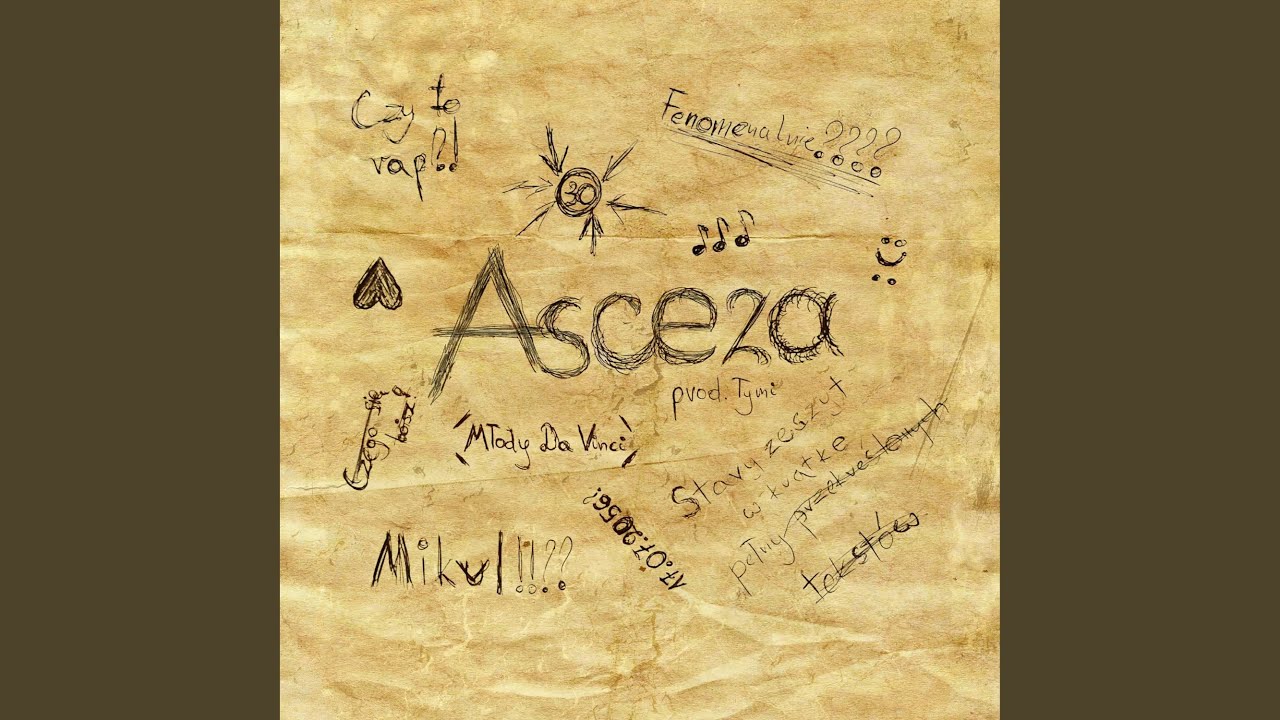 Czy to
rap?!
Fenomenalnie????
30
Asceza
prod. Tymi
Młody Da Vinci
Czego się
boisz?
Stary zeszyt
w kratkę
pełny przekreślonych
tekstów
17.07.2056?
Mikul!!??